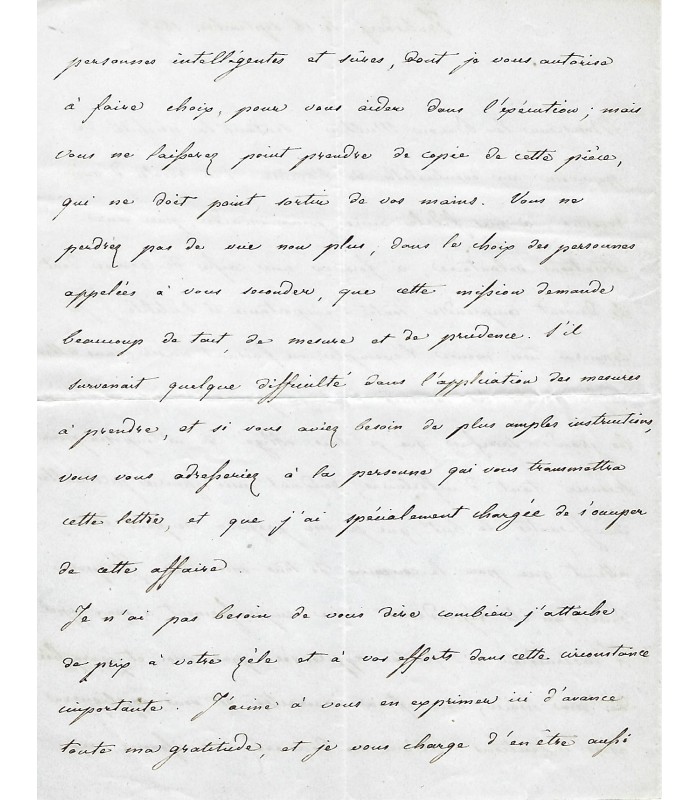 personnes intelligentes et sûres, dont je vous autorise
à faire choix, pour vous aider dans l'exécution ; mais
vous ne laisserez point prendre de copie de cette pièce,
qui ne doit point sortir de vos mains. Vous ne
perdrez pas de vue non plus, dans le choix des personnes
appelées à vous seconder, que cette mission demande
beaucoup de tact, de mesure et de prudence. S'il
survenait quelque difficulté dans l'application des mesures
à prendre, et si vous aviez besoin de plus amples instructions,
vous vous adresseriez à la personne qui vous transmettra
cette lettre, et que j'ai spécialement chargée de s'occuper
de cette affaire.
Je n'ai pas besoin de vous dire combien j'attache
de prix à votre zèle et à vos efforts dans cette circonstance
importante. J'aime à vous en exprimer ici d'avance
toute ma gratitude, et je vous charge d'en être aussi